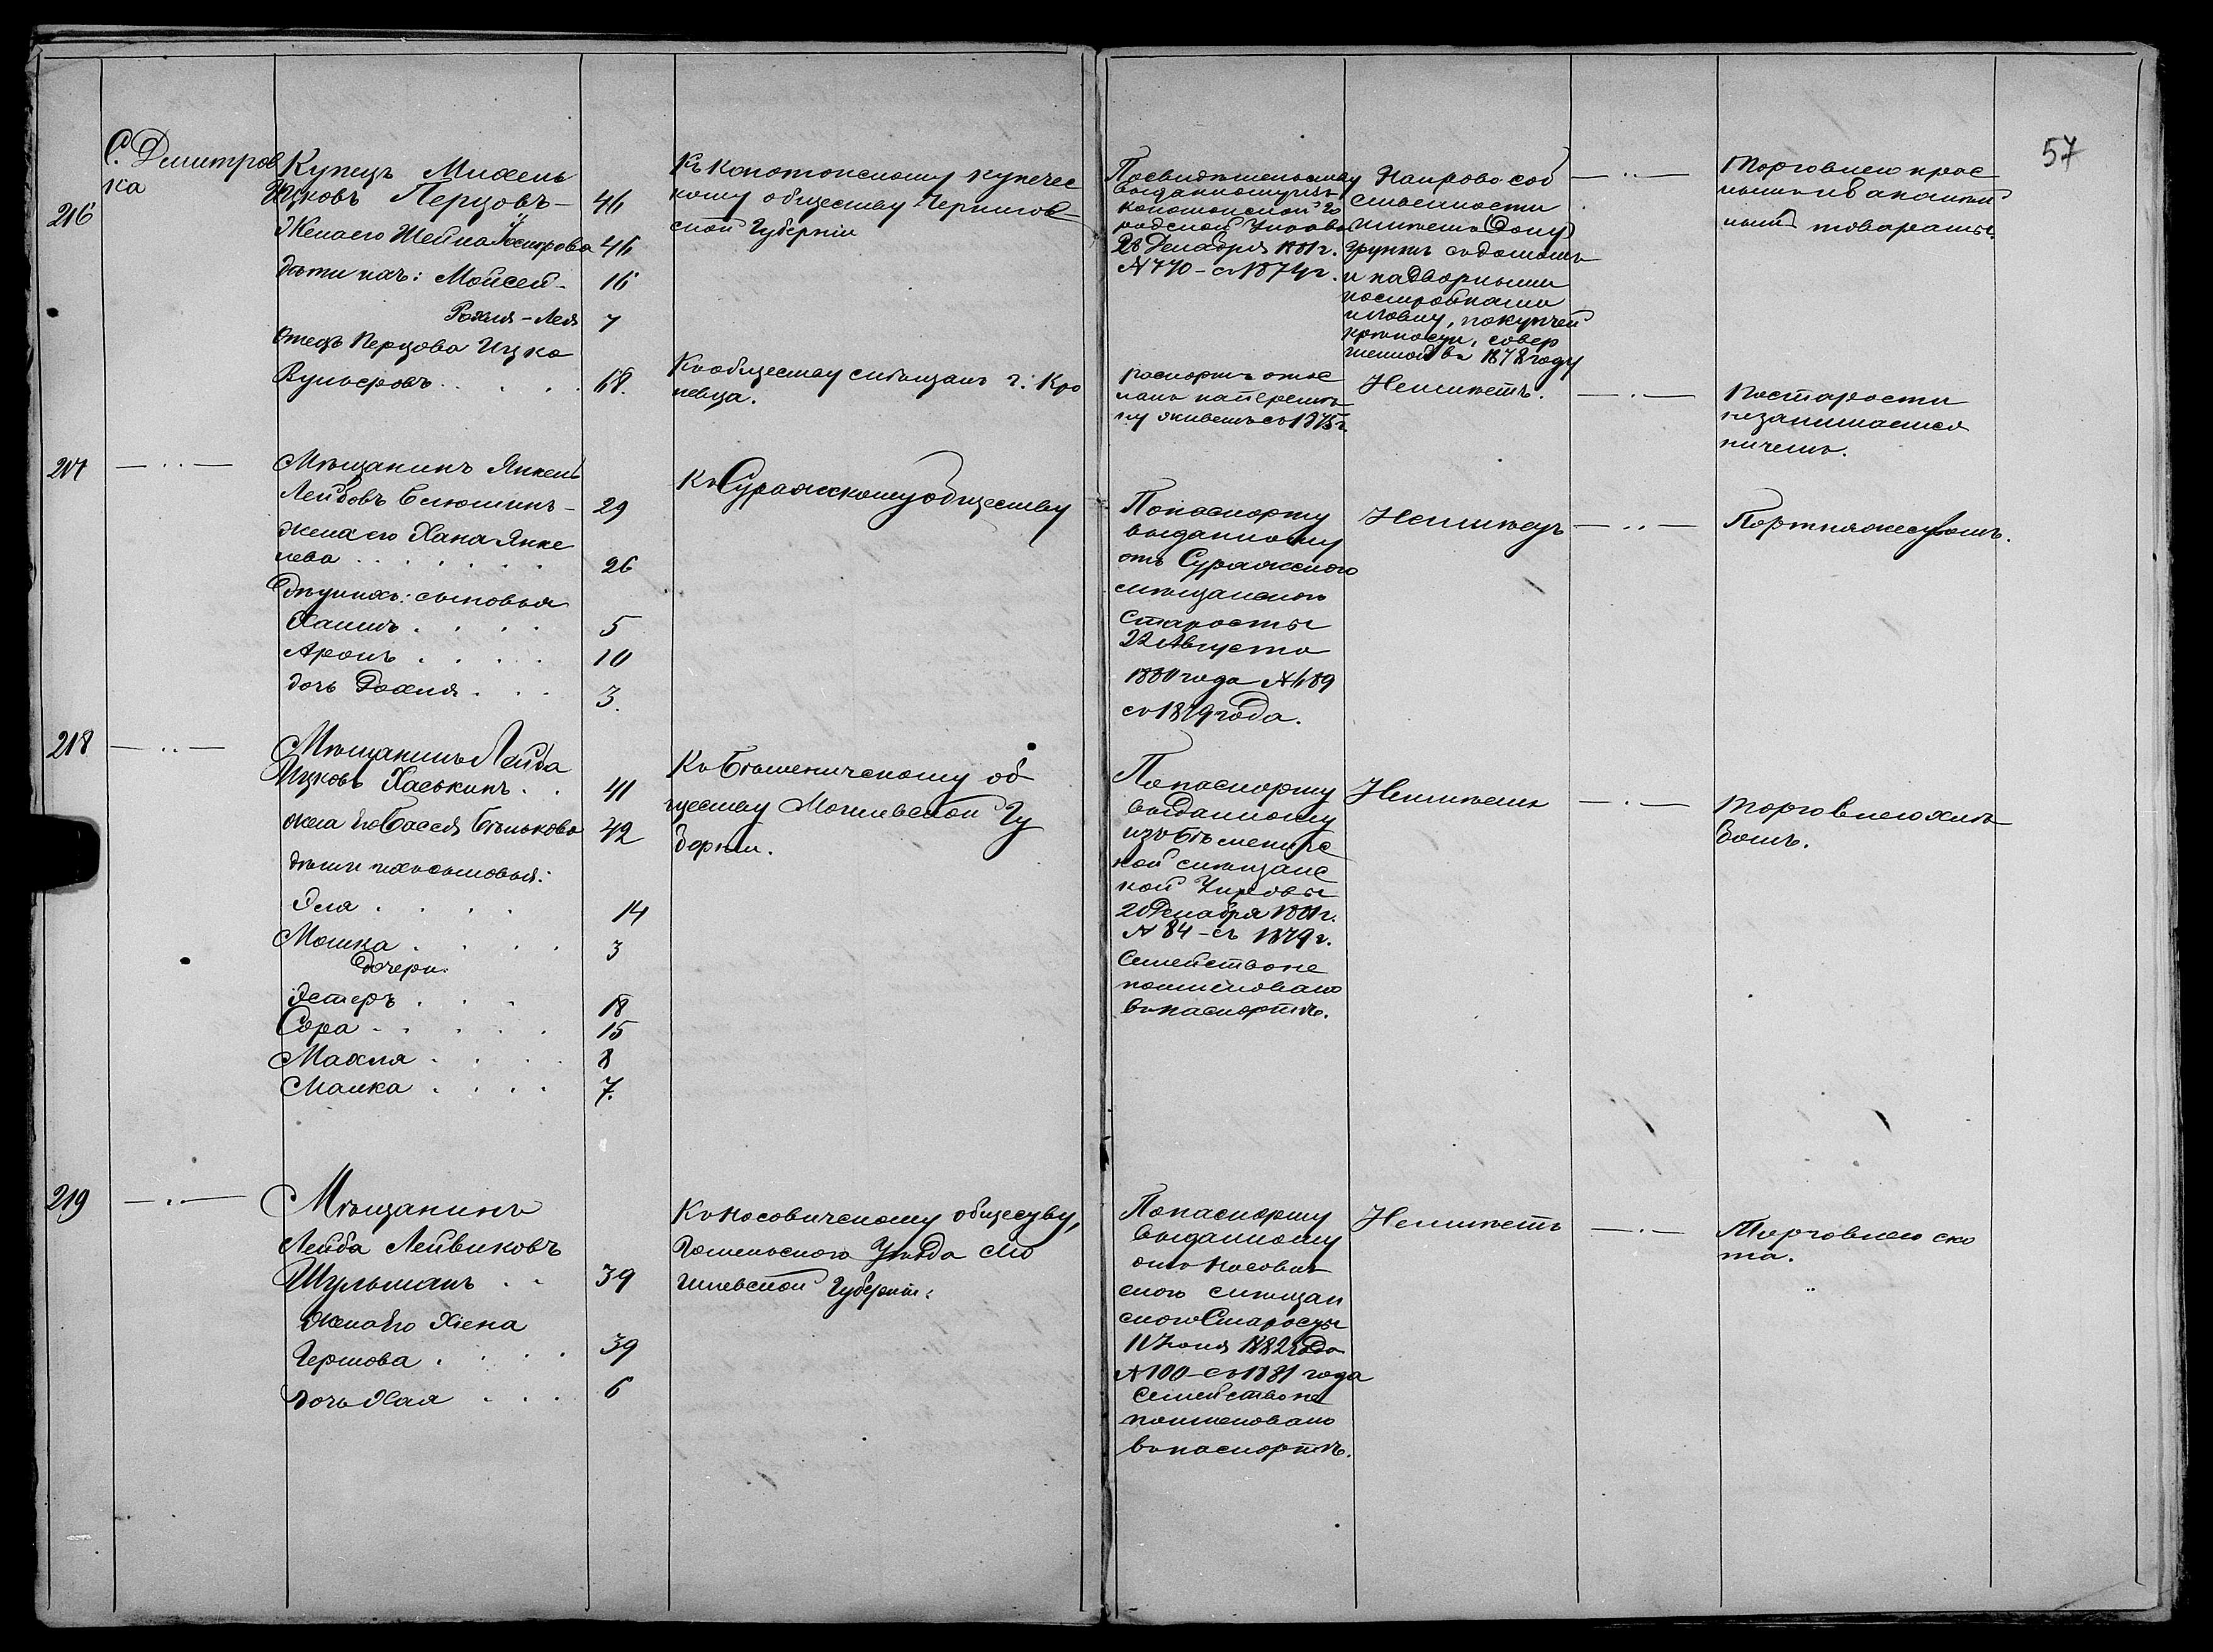 57
С. Дмитров
ка
216
Купецъ Михель
Ицковъ Перцовъ – 46
Жена его Шейна 46
дѣти ихъ: Мойсей – 16
Рохля – Лея 7
Отецъ Перцова Ицко
Вульфовъ . . . . 68.
Къ Конотопскому купечес
кому обществу Чернигов
ской Губерніи
Къ обществу мѣщанъ г. Кро
левца.
По свидѣтельству
выданному изъ
Конотопской Го
родской Управы
28 Декабря 1881 г.
№ 770 – съ 1874 г.
паспортъ отос
ланъ на перемѣ
ну живетъ съ 1875 г.
На право соб
ственности
имѣетъ одну
грунтъ съ домомъ
и надворными
постройками
по купчей
крѣпости, совер
шенной въ 1878 году
Неимѣетъ.
— ·· —
— ·· —
Торговлею крас
нымъ и бакалей
нымъ товарами.
По старости
незанимается
ничемъ.
217
— ·· —
Мѣщанинъ Янкель
Лейбовъ – 29
жена его Хана Янке
лева . . . . . . 26
Дѣти ихъ: сыновья
Хаимъ . . . . 5
Аронъ . . . . 10
дочь Рохля . . . 3.
Къ Суражскому обществу
По паспорту
выданному
отъ Суражского
мѣщанского
Старосты
22 Августа
1880 года № 489
съ 1879 года.
Неимѣетъ
— ·· —
Портняжествомъ.
218
— ·· —
Мѣщанинъ Лейба
Ицковъ Хаськинъ . . 41
жена его Бася Бѣлькова 42
дѣти ихъ сыновья:
Эля . . . . 14
Мошка . . . . 3
Дочери:
Эстеръ . . . 18
Сора . . . . . 15
Махля . . . . 8
Малка . . . . 7.
Къ Бѣшеничскому об
ществу Могилевской Гу
берніи.
По паспорту
выданному
изъ Бѣшеничс
кой мѣщанс
кой Управы
20 Декабря 1881 г.
№ 84 – съ 1879 г.
Семейство не
поименовано
въ паспортѣ.
Неимѣетъ
— · —
Торговлею хлѣ
бомъ.
219
— · —
Мѣщанинъ
Лейба Лейвиковъ
Шульманъ . . 39
Жена его Хіена
Гершова . . . . 39
дочь Хая . . . 6
Къ Носовичскому обществу,
Гомельского Уѣзда Мо
гилевской Губерніи.
По паспорту
выданному
отъ Носович
ского мѣщан
ского Старосты
11 Іюня 1882 года
№ 100 – съ 1881 года
Семейство не
поименовано
въ паспортѣ.
Неимѣетъ
— · —
Торговлею ско
та.